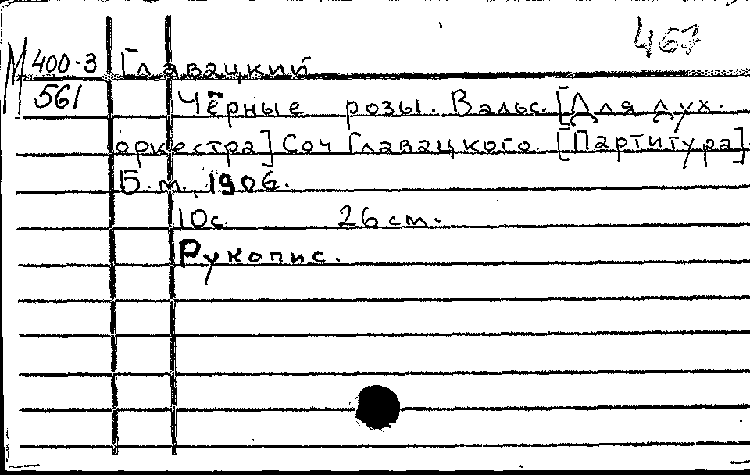 467
М 400-3 Главацкий
561 Чёрные розы. Вальс. [Для дух.
оркестра] Соч Главацкого. [Партитура].
Б. м., 1906.
10с 26 см.
Рукопис.